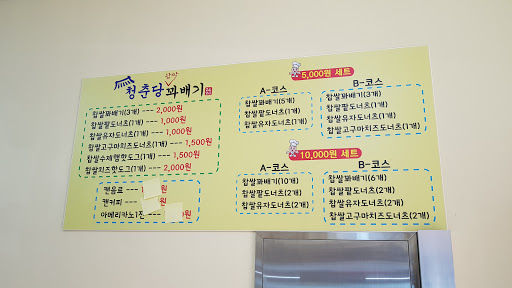 찹쌀
청춘당꽈배기
찹쌀꽈배기(3개) --- 2,000원
찹쌀팥도너츠(1개) --- 1,000원
찹쌀유자도너츠(1개) --- 1,000원
찹쌀고구마치즈도너츠(1개) --- 1,500원
찹쌀수제햄핫도그(1개) --- 1,500원
찹쌀치즈핫도그(1개) --- 2,000원
캔음료 --- 원
캔커피 --- 원
아메리카노1잔 --- 원
5,000원 세트
A-코스
찹쌀꽈배기(5개)
찹쌀팥도너츠(1개)
찹쌀유자도너츠(1개)
B-코스
찹쌀꽈배기(3개)
찹쌀팥도너츠(1개)
찹쌀유자도너츠(1개)
찹쌀고구마치즈도너츠(1개)
10,000원 세트
A-코스
찹쌀꽈배기(10개)
찹쌀팥도너츠(2개)
찹쌀유자도너츠(2개)
B-코스
찹쌀꽈배기(6개)
찹쌀팥도너츠(2개)
찹쌀유자도너츠(2개)
찹쌀고구마치즈도너츠(2개)